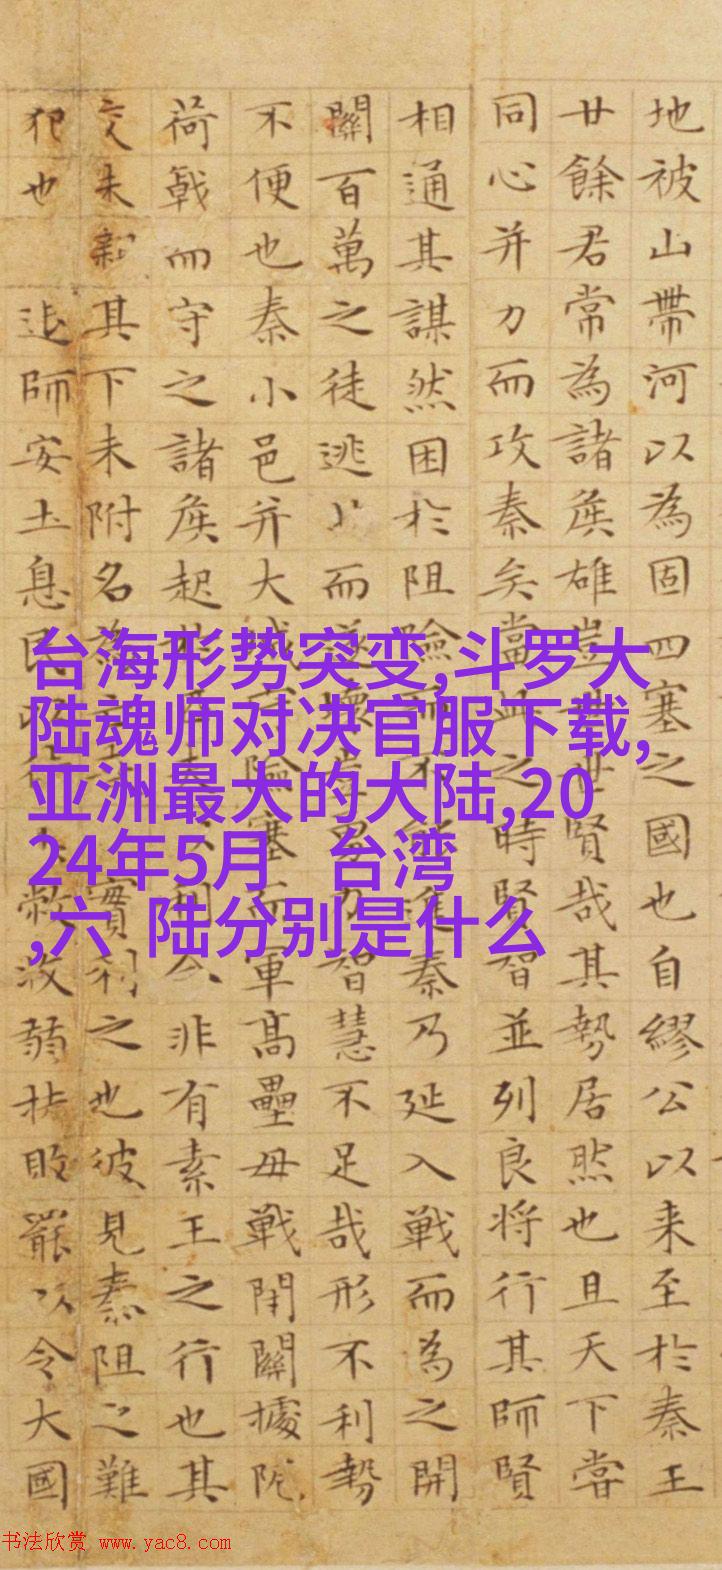 地被山帶河以為固四塞之國也自繆公以来至於秦王
廿餘君常為諸侯雄豈世世賢哉其勢居然也且天下嘗
同心并力而攻秦矣當此之時賢智並列良将行其師賢
相通其謀然困於阻險而不能進秦乃延入戰而為之開
關百萬之徒逃北而遂壞豈勇力智慧不足哉形不利勢
不便也秦小邑并大城險塞而軍高壘毋戰閉關據阨
荷戟而守之諸侯起於夫以利合非有素王之行也其
交未親其下未附名為實利之也彼見秦阻之難
犯也 退師安土息民弊收弱扶敗罷以令大國
台海形势突变,斗罗大
陆魂师对决官服下载,
亚洲最大的大陆,20
24年5月 台湾
,六 陆分别是什么
书法欣赏 www.yac8.com